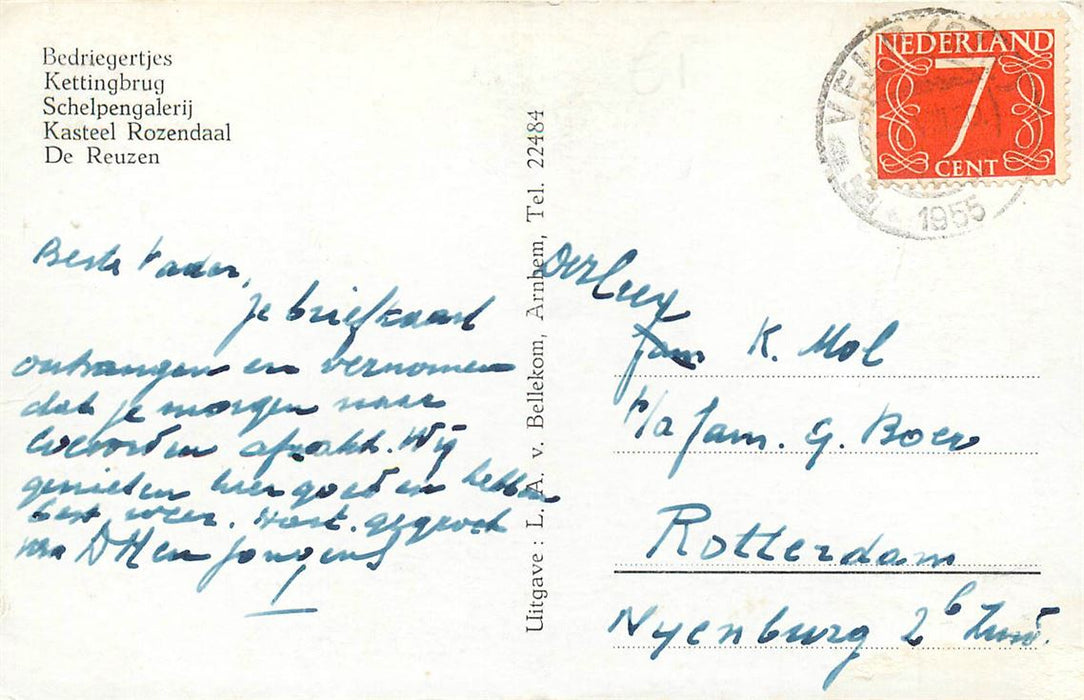 Bedriegertjes
Kettingbrug
Schelpengalerij
Kasteel Rozendaal
De Reuzen
Beste Vader,
je briefkaart
ontvangen en vernomen
dat je morgen naar
afzakt. Wij
genieten hier goed en hebben
best weer. Hart. gegroet
Jongens
Uitgave: L. A. v. Bellekom, Arnhem, Tel. 22484
NEDERLAND
7
CENT
1955
K. Mol
p/a fam. G. Boer
Rotterdam
Nyenburg 2b Zuid.